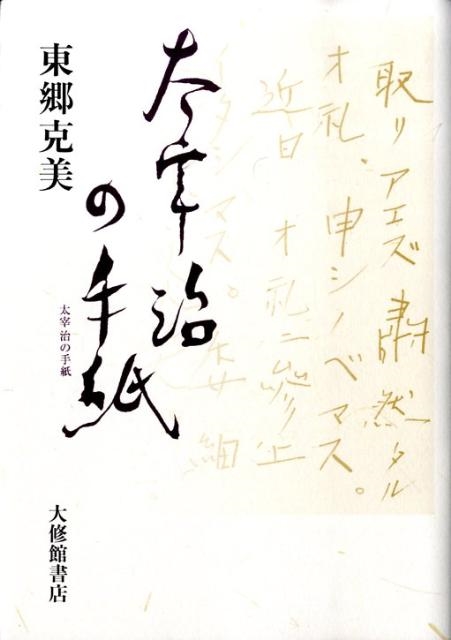 取リアエズ 肅然タル
オ礼、申シノベマス。
近日 オ礼ニ參上
イタシマス。委細
太宰治
の手紙
太宰治の手紙
東郷克美
大修館書店